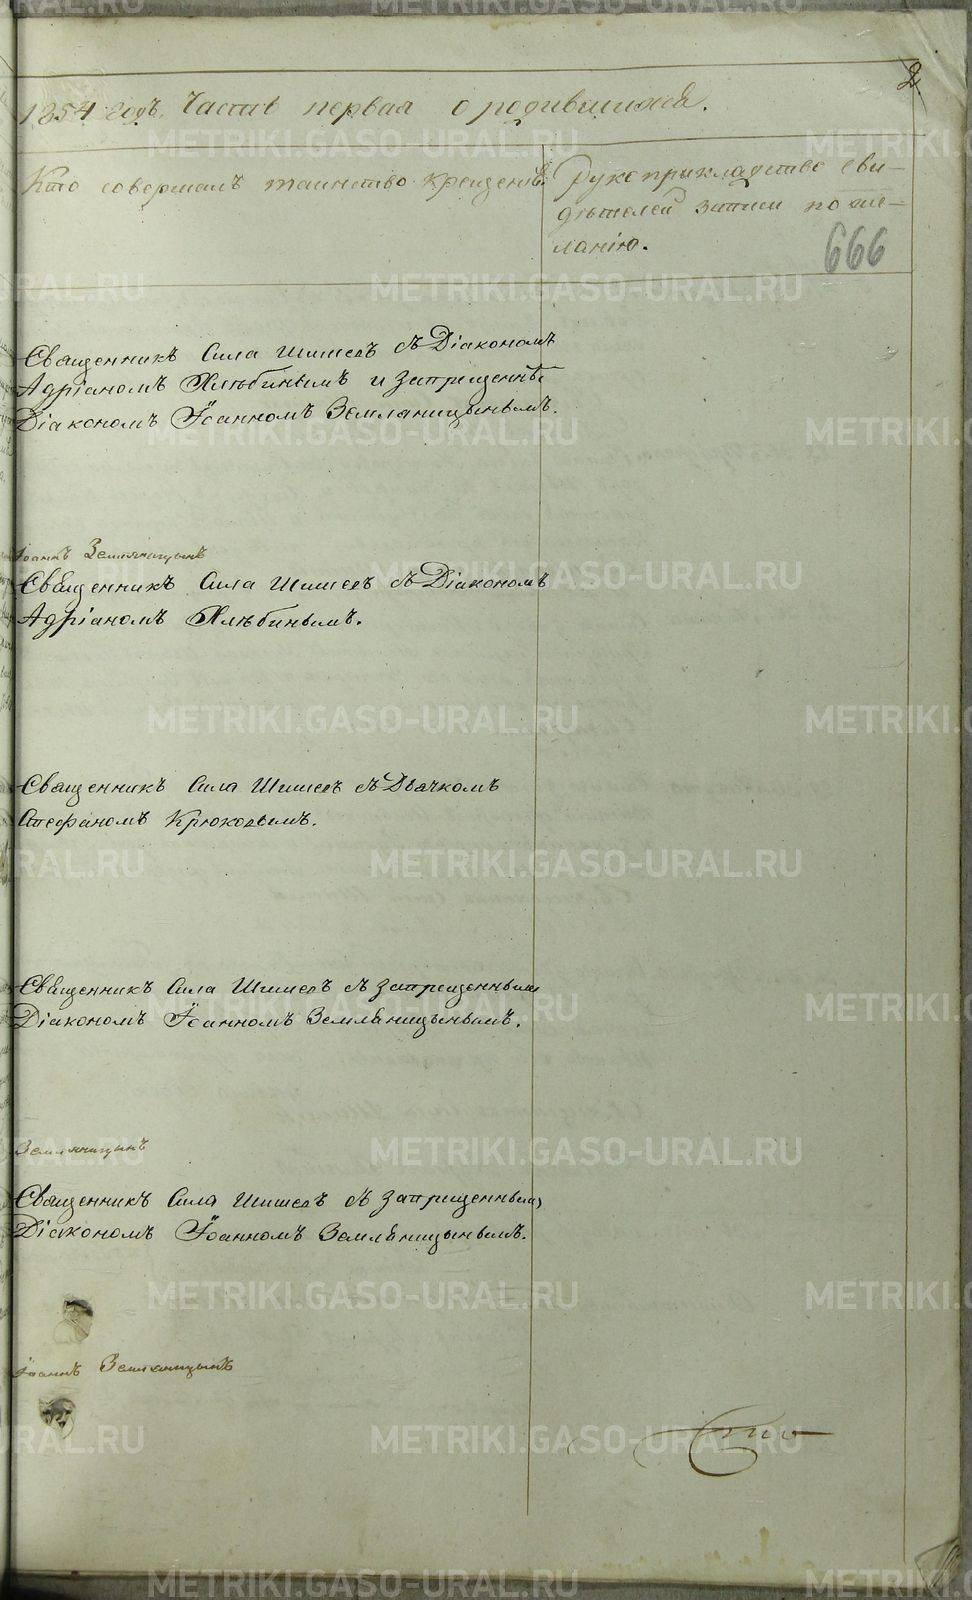 2.
1854 годъ. Часть первая о родившихся.
Кто совершалъ таинство крещенія.
Рукоприкладство сви-
дѣтелей записи по же-
ланію.
666
Священникъ Сила Шишевъ съ Діакономъ
Адріаномъ Хлѣбинымъ и запрещеннымъ
Діакономъ Іоанномъ Земляницынымъ.
Іоаннъ Земляницынъ
Священникъ Сила Шишевъ съ Діакономъ
Адріаномъ Хлѣбинымъ.
Священникъ Сила Шишевъ съ Дьячкомъ
Стефаномъ Крюковымъ.
Священникъ Сила Шишевъ съ запрещеннымъ
Діакономъ Іоанномъ Земляницынымъ.
Земляницынъ
Священникъ Сила Шишевъ съ запрещеннымъ
Діакономъ Іоанномъ Земляницынымъ.
Іоаннъ Земляницынъ
METRIKI.GASO-URAL.RU